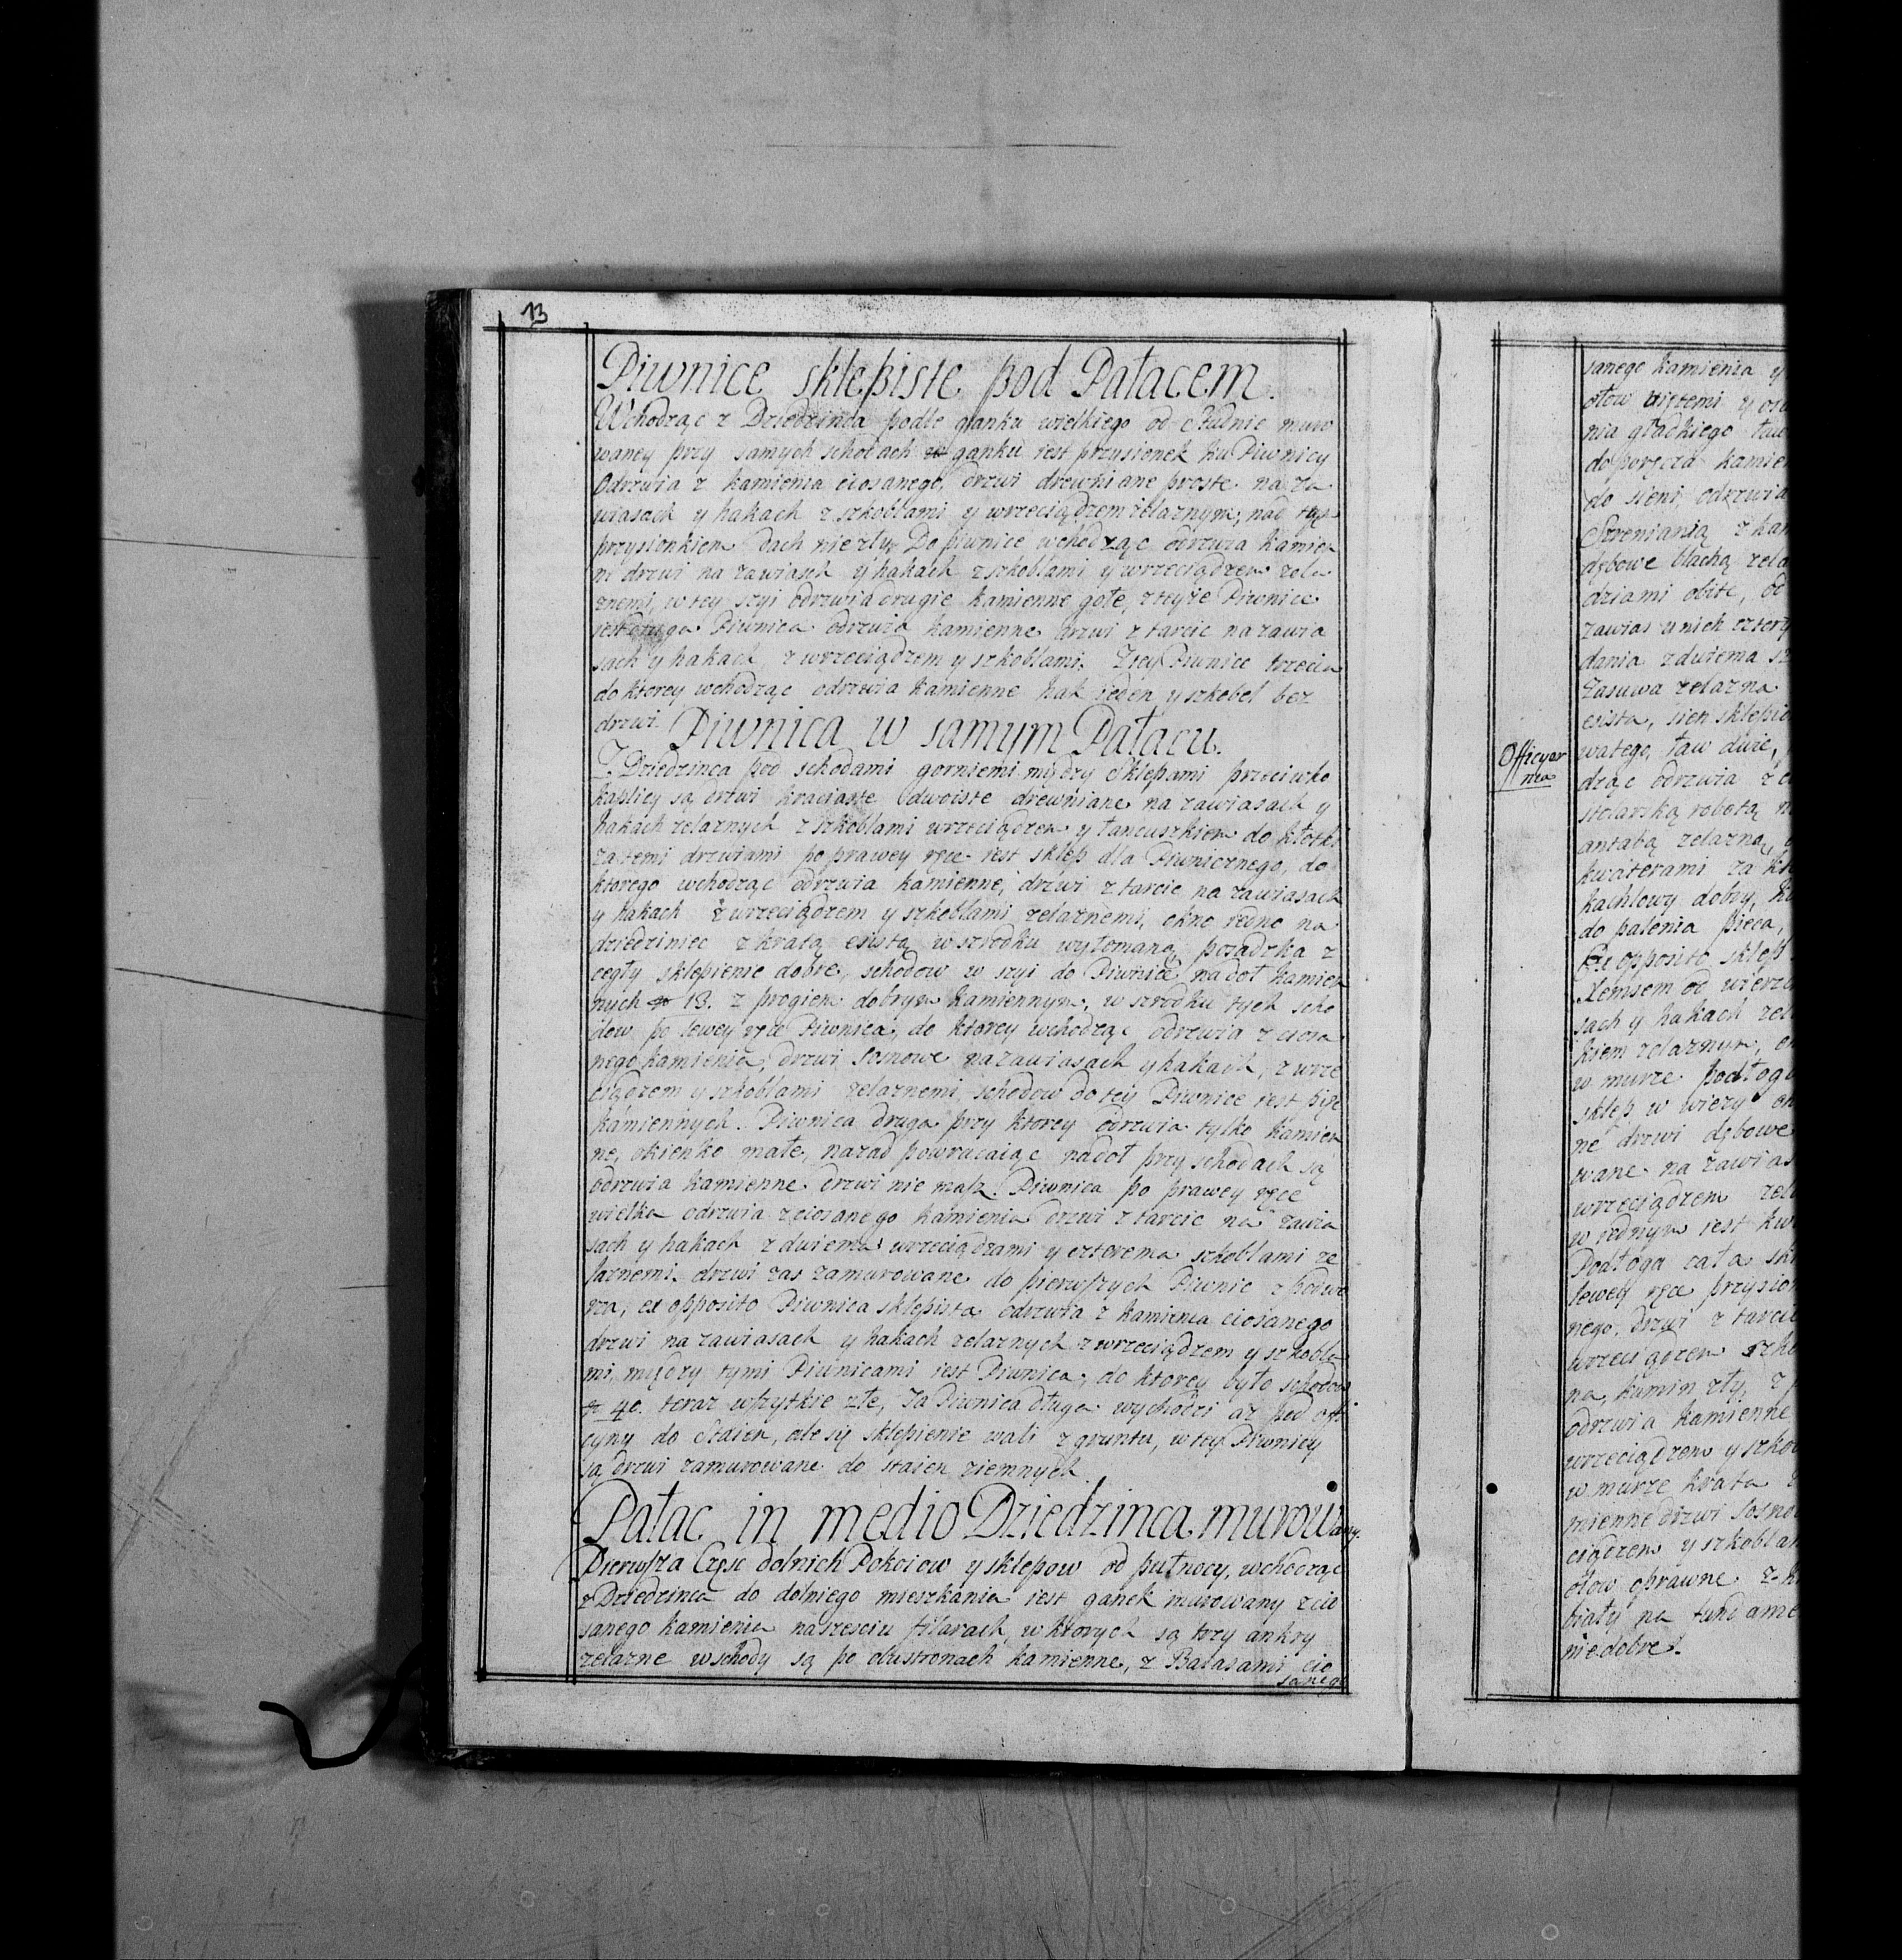 13
Piwnice sklepiste pod Pałacem.
Wchodząc z Dziedzinca podle ganku wielkiego od Studnie muro
waney przy samych schodach ganku iest przysionek ku Piwnicy
Odrzwia z kamienia ciosanego, drzwi drewniane proste na za
wiasach y hakach z szkoblami y wrzeciądzem żelaznym; nad tym
przysionkiem dach niezły. Do piwnice wchodząc odrzwia kamien
ne drzwi na zawiasach y hakach z szkoblami y wrzeciądzem żela
znemi, w tey szyi odrzwia drugie kamienne gołe, z teyże Piwnice
iest druga Piwnica odrzwia kamienne drzwi z tarcic na zawia
sach y hakach, z wrzeciądzem y szkoblami. Z tey Piwnice trzecia
do ktorey wchodząc odrzwia kamienne hak ieden y szkobel bez
drzwi. Piwnica w samym Pałacu.
Z Dziedzinca pod schodami gorniemi między Sklepami przeciwko
kaplicy są drzwi kraciaste dwoiste drewniane na zawiasach y
hakach zelaznych z szkoblami wrzeciądzem y łancuszkiem do kłotki
za temi drzwiami po prawey ręce iest sklep dla Piwnicznego, do
ktorego wchodząc odrzwia kamienne, drzwi z tarcic na zawiasach
y hakach z wrzeciądzem y szkoblami zelaznemi, okno iedno na
dziedziniec z kratą esistą w srzodku wyłomaną, posadzka z
cegły sklepienie dobre, schodow w szyi do Piwnice na doł kamien
nych 13. z progiem dobrym kamiennym, w srzodku tych scho
dow po lewey ręce Piwnica, do ktorey wchodząc odrzwia z ciosa
nego kamienia, drzwi sosnowe na zawiasach y hakach, z wrze
ciądzem y szkoblami zelaznemi, schodow do tey Piwnice iest pięc
kamiennych. Piwnica druga przy ktorey odrzwia tylko kamien
ne, okienko małe, nazad powracaiąc nadoł przy schodach są
odrzwia kamienne drzwi nie masz. Piwnica po prawey ręce
wielka odrzwia z ciosanego kamienia drzwi z tarcic na zawia
sach y hakach z dwiema wrzeciądzami y czterema szkoblami ze
laznemi. drzwi zas zamurowane do pierwszych Piwnic z podwo
rza, ex opposito Piwnica sklepista odrzwia z kamienia ciosanego
drzwi na zawiasach y hakach zelaznych z wrzeciądzem y szkobla
mi, między tymi Piwnicami iest Piwnica, do ktorey było schodow
40. teraz wszytkie złe, Ta Piwnica długa wychodzi az pod offi
cyny do Staien, ale się sklepienie wali z gruntu, w tey Piwnicy
są drzwi zamurowane do staien ziemnych.
Pałac in medio Dziedzinca murowany.
Pierwsza Częsc dolnich Pokoiow y sklepow od pułnocy, wchodząc
z Dziedzinca do dolniego mieszkania iest ganek murowany z cio
sanego kamienia na szesciu filarach, w ktorych są trzy ankry
zelazne wschody są po obustronach kamienne, z Balasami cio
sanego
sanego kamienia y
ołow
nia gładkiego
do poręcza kamie
do sieni odrzwia
z kam
dębowe blachą zela
dziami obite, od
zawias u nich cztery
dania z dwiema
Zasuwa zelazna
esista, sien sklepio
Officyar
nia
watego, ław dwie,
dząc odrzwia z
stolarską robotą
antabą zelazną,
kwaterami za
kachlowy dobry,
do palenia pieca,
Ex opposito sklep
od wierz
sach y hakach zel
kiem zelaznym,
w murze podłoga
sklep w wiezy
ne drzwi dębowe
wane na zawias
wrzeciądzem zel
w iednym iest
Podłoga cała
lewey ręce przysion
nego, drzwi z tarcic
wrzeciądzem szko
na, kumin zły, z
odrzwia kamienne
wrzeciądzem y szko
w murze krata
mienne drzwi sosno
ciądzem y szkoblam
ołow oprawne
biały na fundame
niedobre.